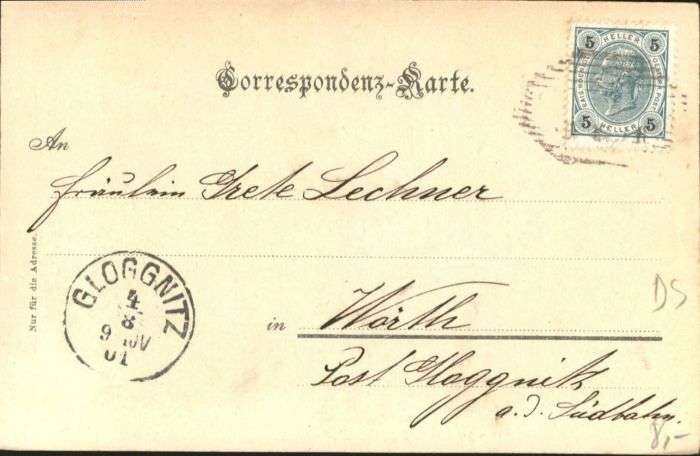 Correspondenz-Karte.
5 HELLER 5
5 HELLER 5
An
Fräulein Grete Lechner
Nur für die Adresse.
GLOGGNITZ
4
8
9
01
in Wörth
Post Gloggnitz
a. d. Südbahn.
DS
8,-